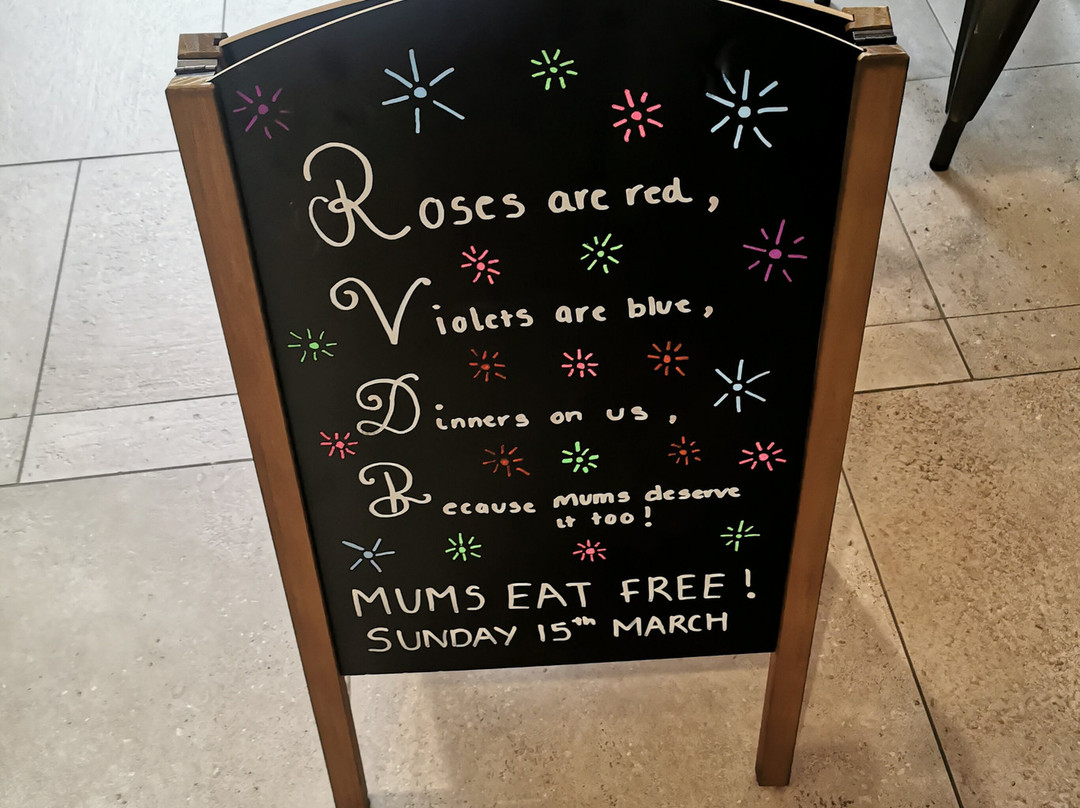 Roses are red,
Violets are blue,
Dinners on us,
Because mums deserve
it too!
MUMS EAT FREE!
SUNDAY 15th MARCH